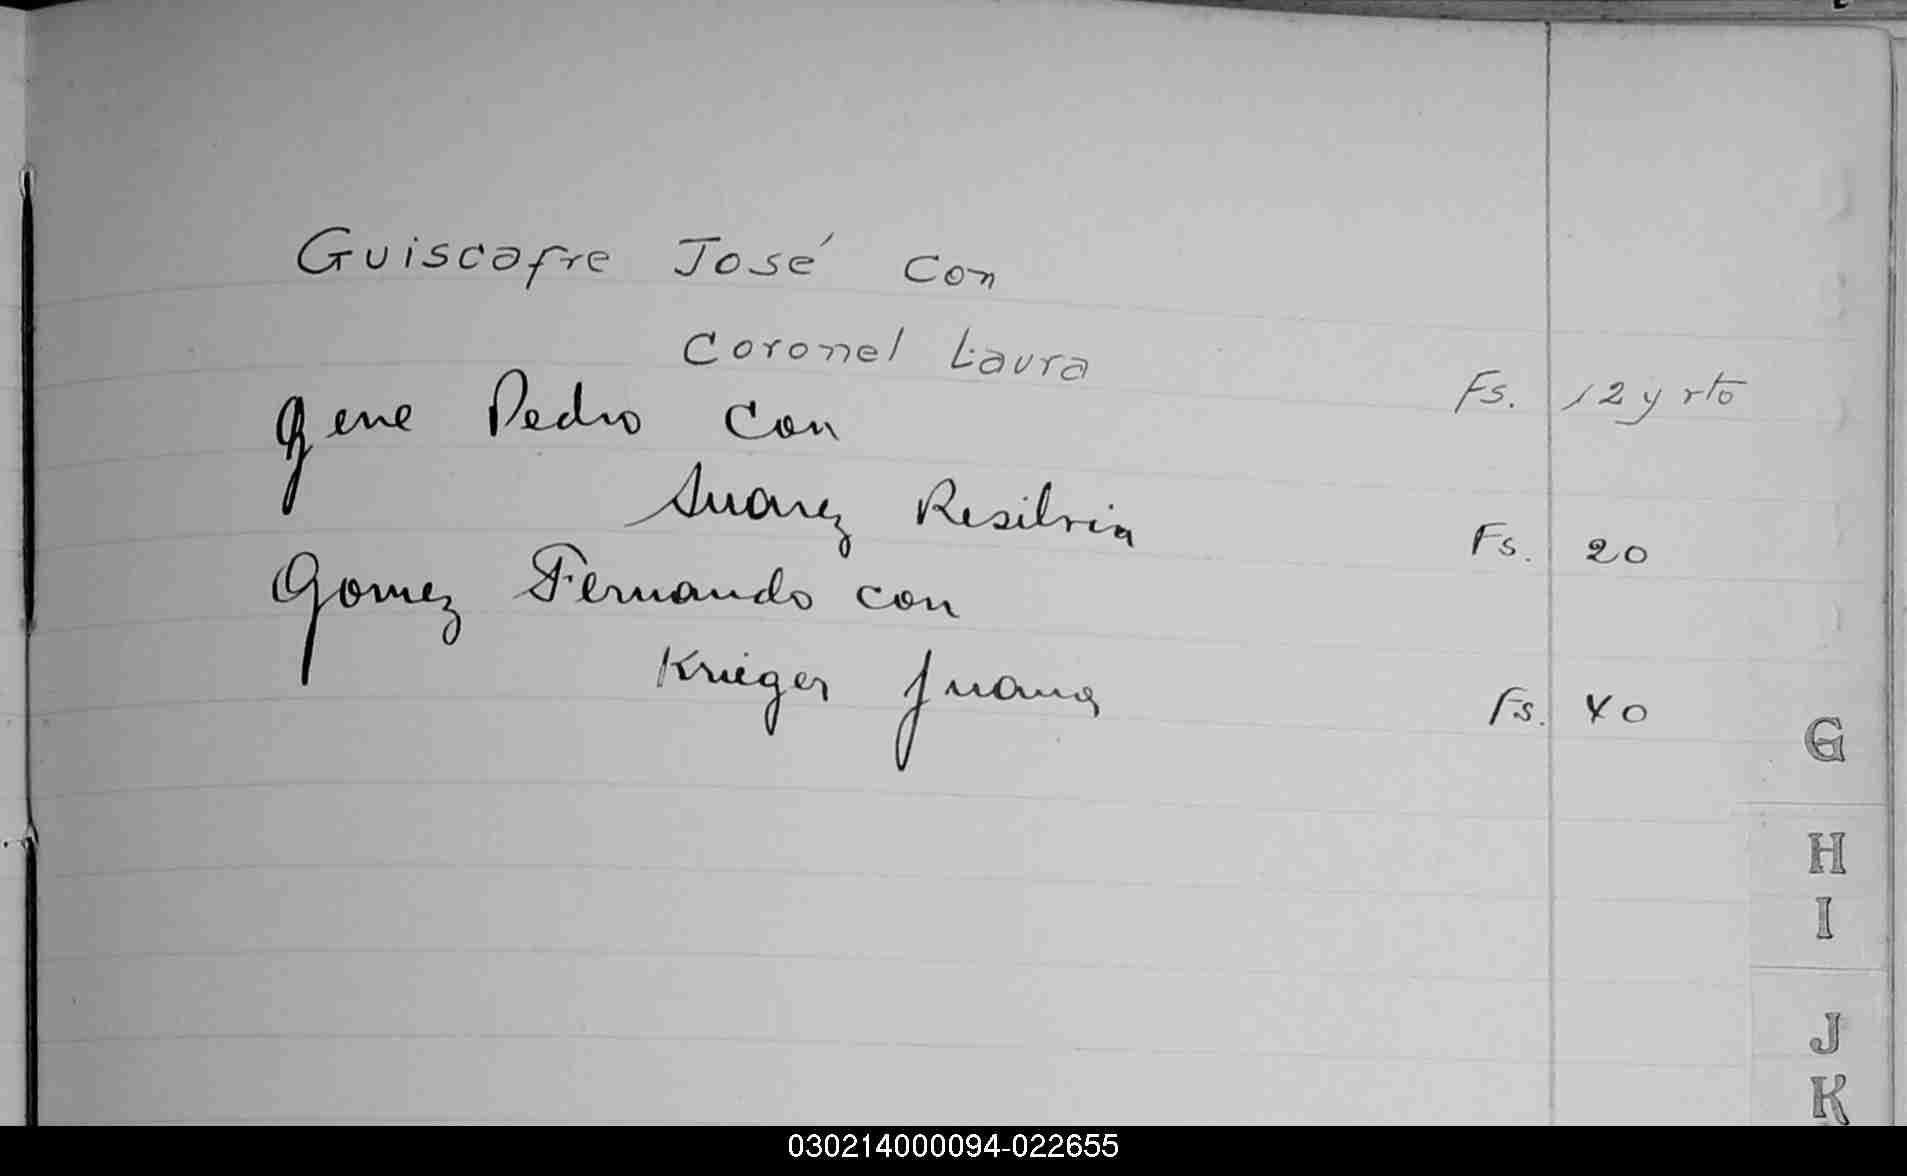 Guiscafre José Con
Coronel Laura Fs. 12 y vto
Gene Pedro con
Suarez Resilvia Fs. 20
Gomez Fernando con
Krieger Juana Fs. 40
G
H
I
J
K
030214000094-022655